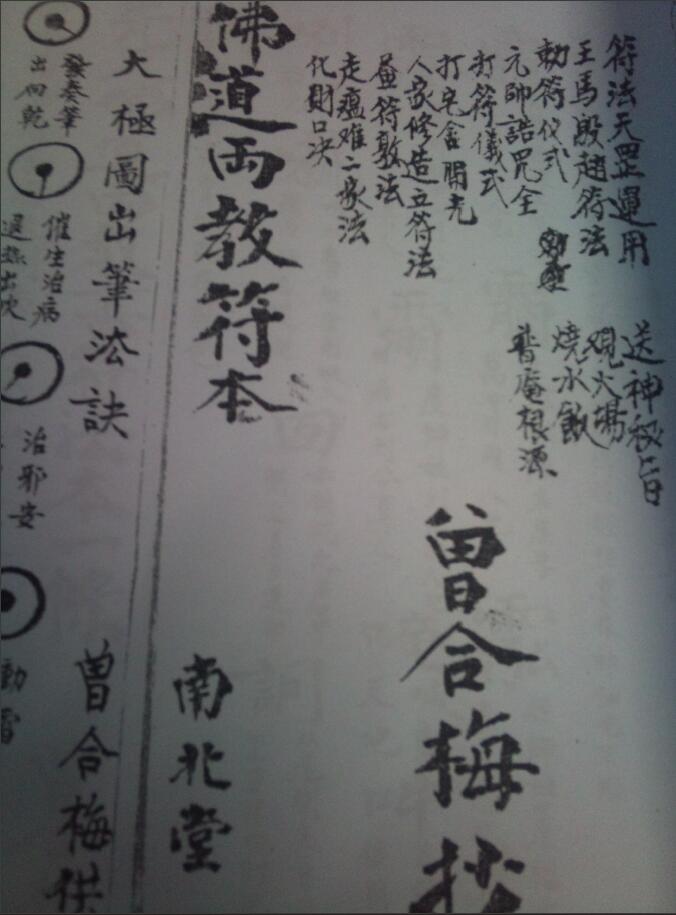 符法天罡運用
王馬殷趙符法
勅符仪式
元帥誥咒全
打符儀式
打宅舍開光
人家修造立符法
叠符敕法
走瘟难二家法
化財口决
送神秘旨
観火場
燒水飯
普庵根源
曾合梅抄
佛道両教符本
南北堂
大極圖出筆法訣
曾合梅供
發奏筆
出向乾
催生治病
治邪安